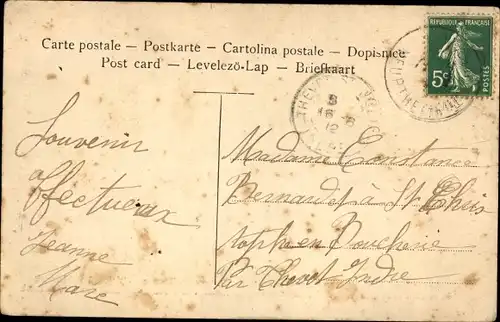 Carte postale — Postkarte — Cartolina postale — Dopisnice
Post card — Levelezö-Lap — Briefkaart
RÉPUBLIQUE FRANÇAISE
5c
POSTES
Souvenir
affectueux
Jeanne
Marc
Madame Constance
Bernardet à St Chris
tophe en Boucherie
Par Thevet-Indre